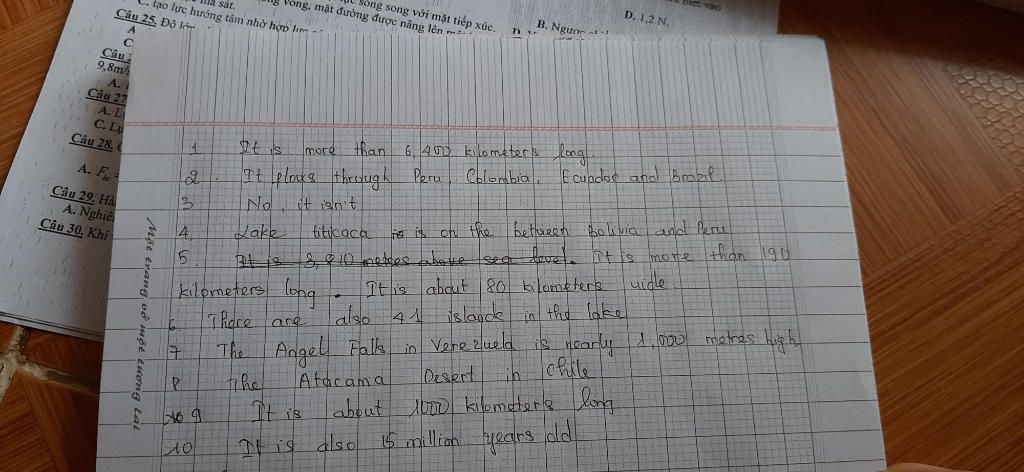 tạo lực hướng tâm nhờ hợp lực
song song với mặt tiếp xúc.
vòng, mặt đường được nâng lên
B. Ngược
D. 1,2 N.
Câu 25. Độ lớn
A
C
Câu
9,8m/
A.
Câu 27
A. L
C. Lự
Câu 28.
A. F
Câu 29. Hã
A. Nghiê
Câu 30. Khi
Một trang vở một tương lai
1 It is more than 6,400 kilometers long.
2. It flows through Peru, Colombia, Ecuador and Brazil.
3 No, it isn't
4. Lake titicaca is on the between Bolivia and Peru
5. It is 3,810 metres above sea level. It is more than 190
kilometers long. It is about 80 kilometers wide.
6 There are also 41 islands in the lake
7 The Angel Falls in Venezuela is nearly 1,000 metres high
8 The Atacama Desert in Chile
9 It is about 1000 kilometers long
10 It is also 15 million years old